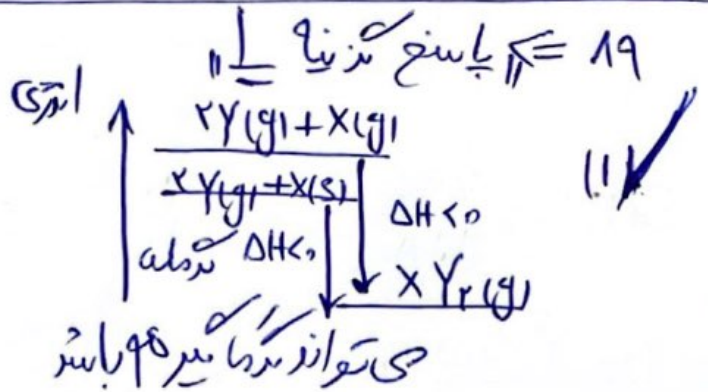 ۸۹ => پاسخ گزینه "۱"
انرژی
۲Y(g) + X(g)
(۱)
۲Y(g) + X(s)
ΔH<۰
گرماده ΔH<۰
XY₂(g)
می‌تواند گرماگیر هم باشد